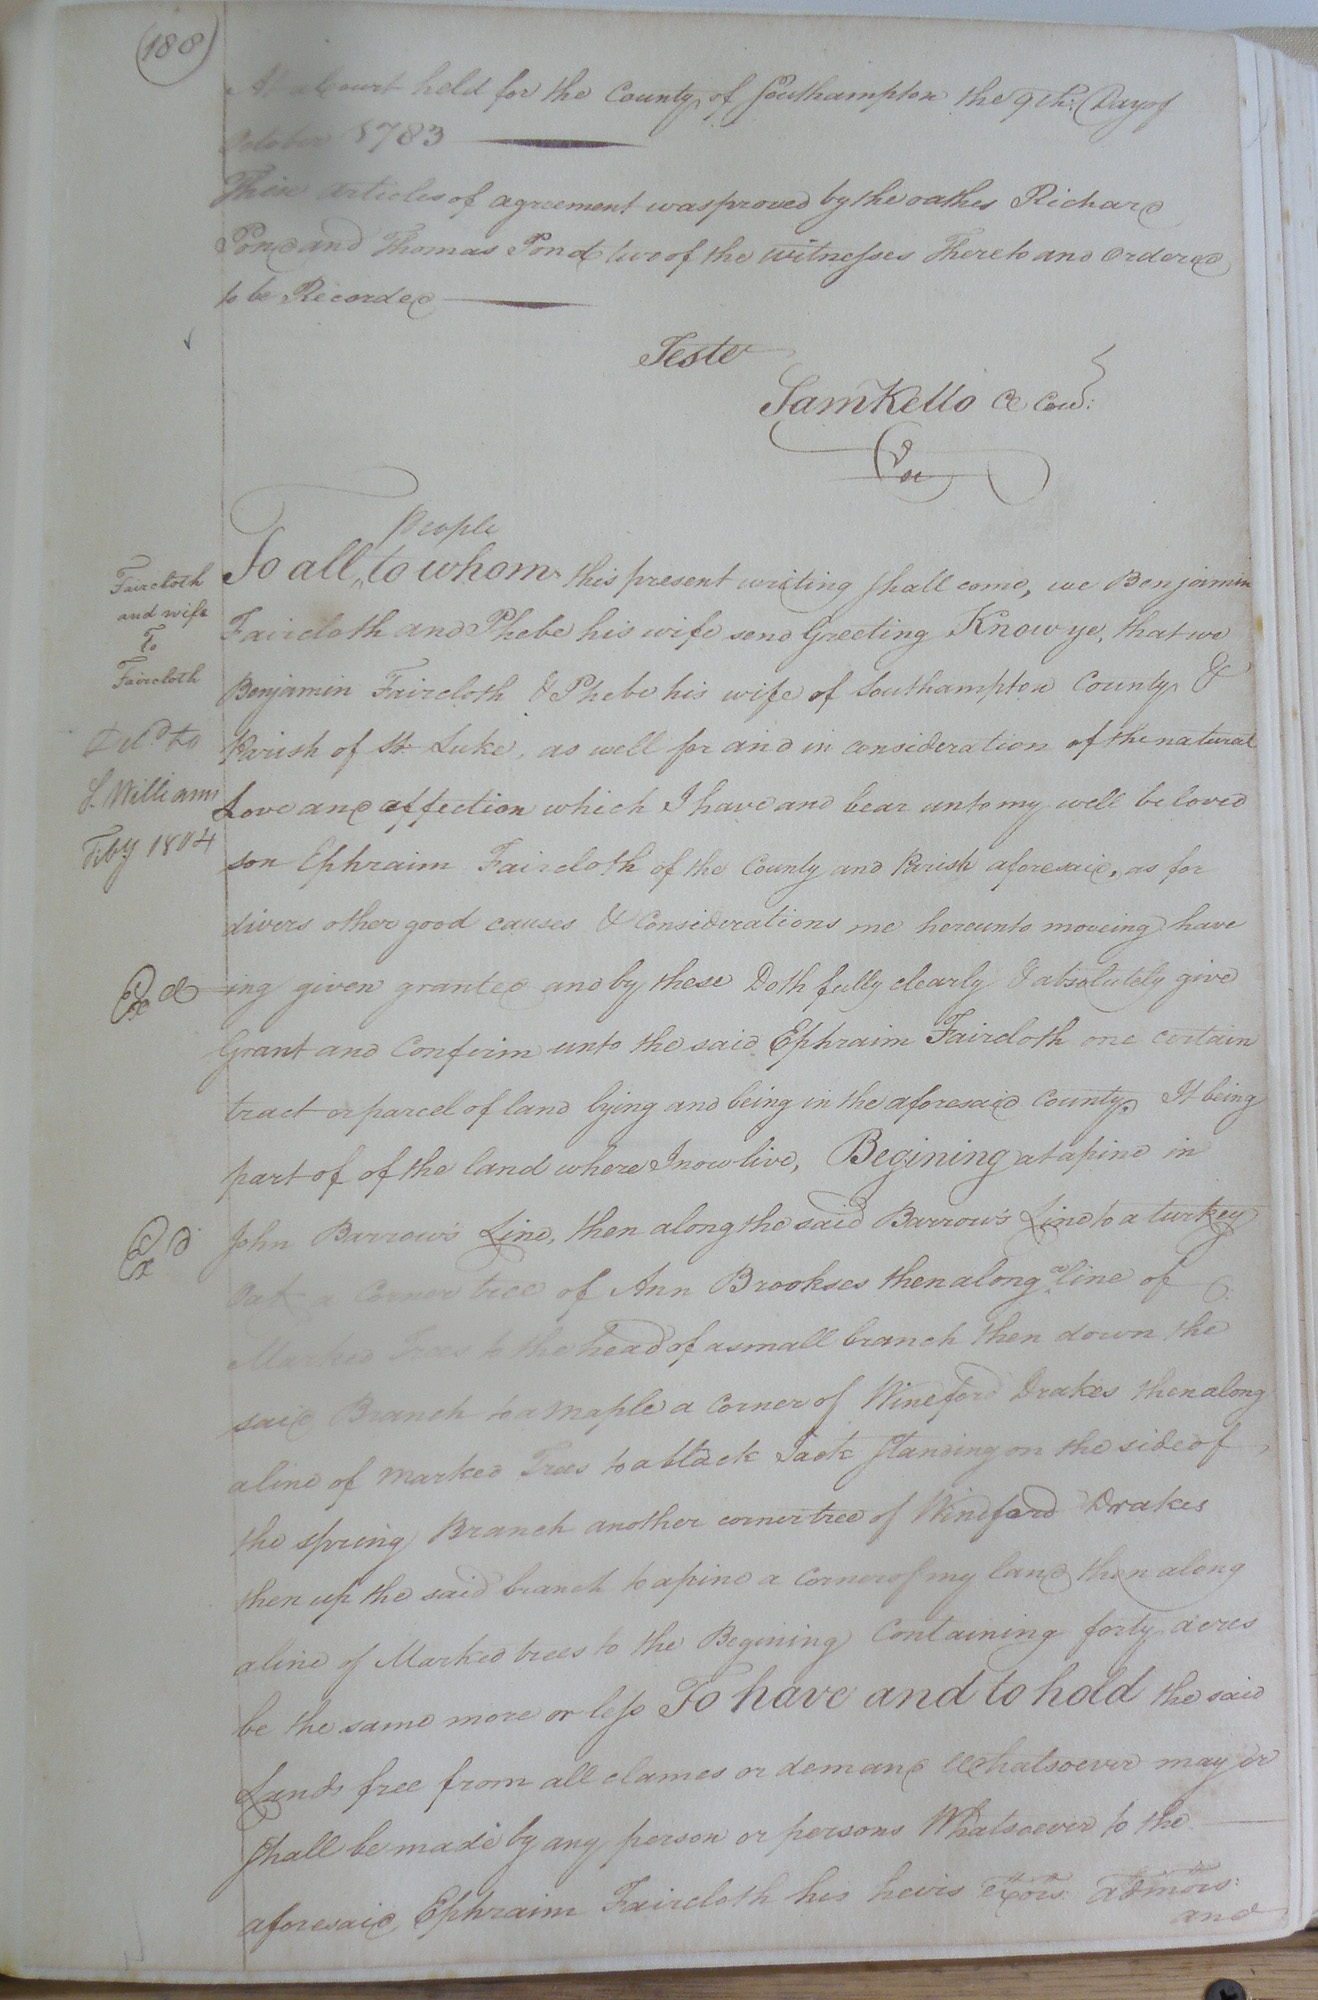 (188)
At a Court held for the County of Southampton the 9th: Day of
October 1783
These articles of agreement was proved by the oathes Richard
Pond and Thomas Pond two of the witnesses Thereto and ordered
to be Recorded
Teste
Sam Kello Cl Cur:
People
To all, to whom this present writing shall come, we Benjamin
Faircloth and Phebe his wife send Greeting Know ye, that we
Benjamin Faircloth & Phebe his wife of Southampton County &
Parish of St. Luke, as well for and in consideration of the natural
Love and affection which I have and bear unto my well beloved
son Ephraim Faircloth of the County and Parish aforesaid, as for
divers other good causes & Considerations me hereunto moveing have
ing given granted and by these Doth fully clearly & absolutely give
Grant and Confirm unto the said Ephraim Faircloth one certain
tract or parcel of land lying and being in the aforesaid County. It being
part of of the land where I now live, Begining at a pine in
John Barrow's Line, then along the said Barrow's Line to a turkey
Oak a Corner tree of Ann Brookses then along a line of
Marked Trees to the head of a small branch then down the
said Branch to a maple a corner of Wineford Drakes then along
a line of marked Trees to a black Jack standing on the side of
the spring Branch another corner tree of Wineford Drakes
then up the said branch to a pine a corner of my land then along
a line of Marked trees to the Begining Containing forty acres
be the same more or less To have and to hold the said
Land, free from all clames or demand Whatsoever may or
shall be made by any person or persons Whatsoever to the
aforesaid Ephraim Faircloth his heirs Exors: admors:
and
Faircloth
and wife
To
Faircloth
Deld to
J. Williams
Feby 1804
Exd
Exd